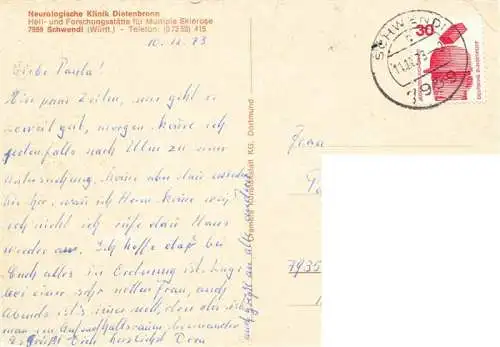 Neurologische Klinik Dietenbronn
Heil- und Forschungsstätte für Multiple Sklerose
7959 Schwendi (Württ.) - Telefon: (07353) 415
10.12.73
Liebe Paula!
Hier paar Zeilen, uns geht es
soweit gut, morgen komme ich
jedenfalls nach Ulm zu einer
Untersuchung, komme aber dann wieder
hier her, wann ich Heim komme weiß
ich nicht ich rufe dann Hans
wieder an. Ich hoffe daß bei
Euch alles in Ordnung ist. Liege
bei einer sehr netten Frau, auch
Abends ist's immer nett, denn da ist
man im Aufenthaltsraum beieinander
Es grüßt Dich herzlichst Dora
auch Grüße an alle
KG. Dortmund
SCHWENDI
11.12.73
7959
30
DEUTSCHE BUNDESPOST
Frau
7935